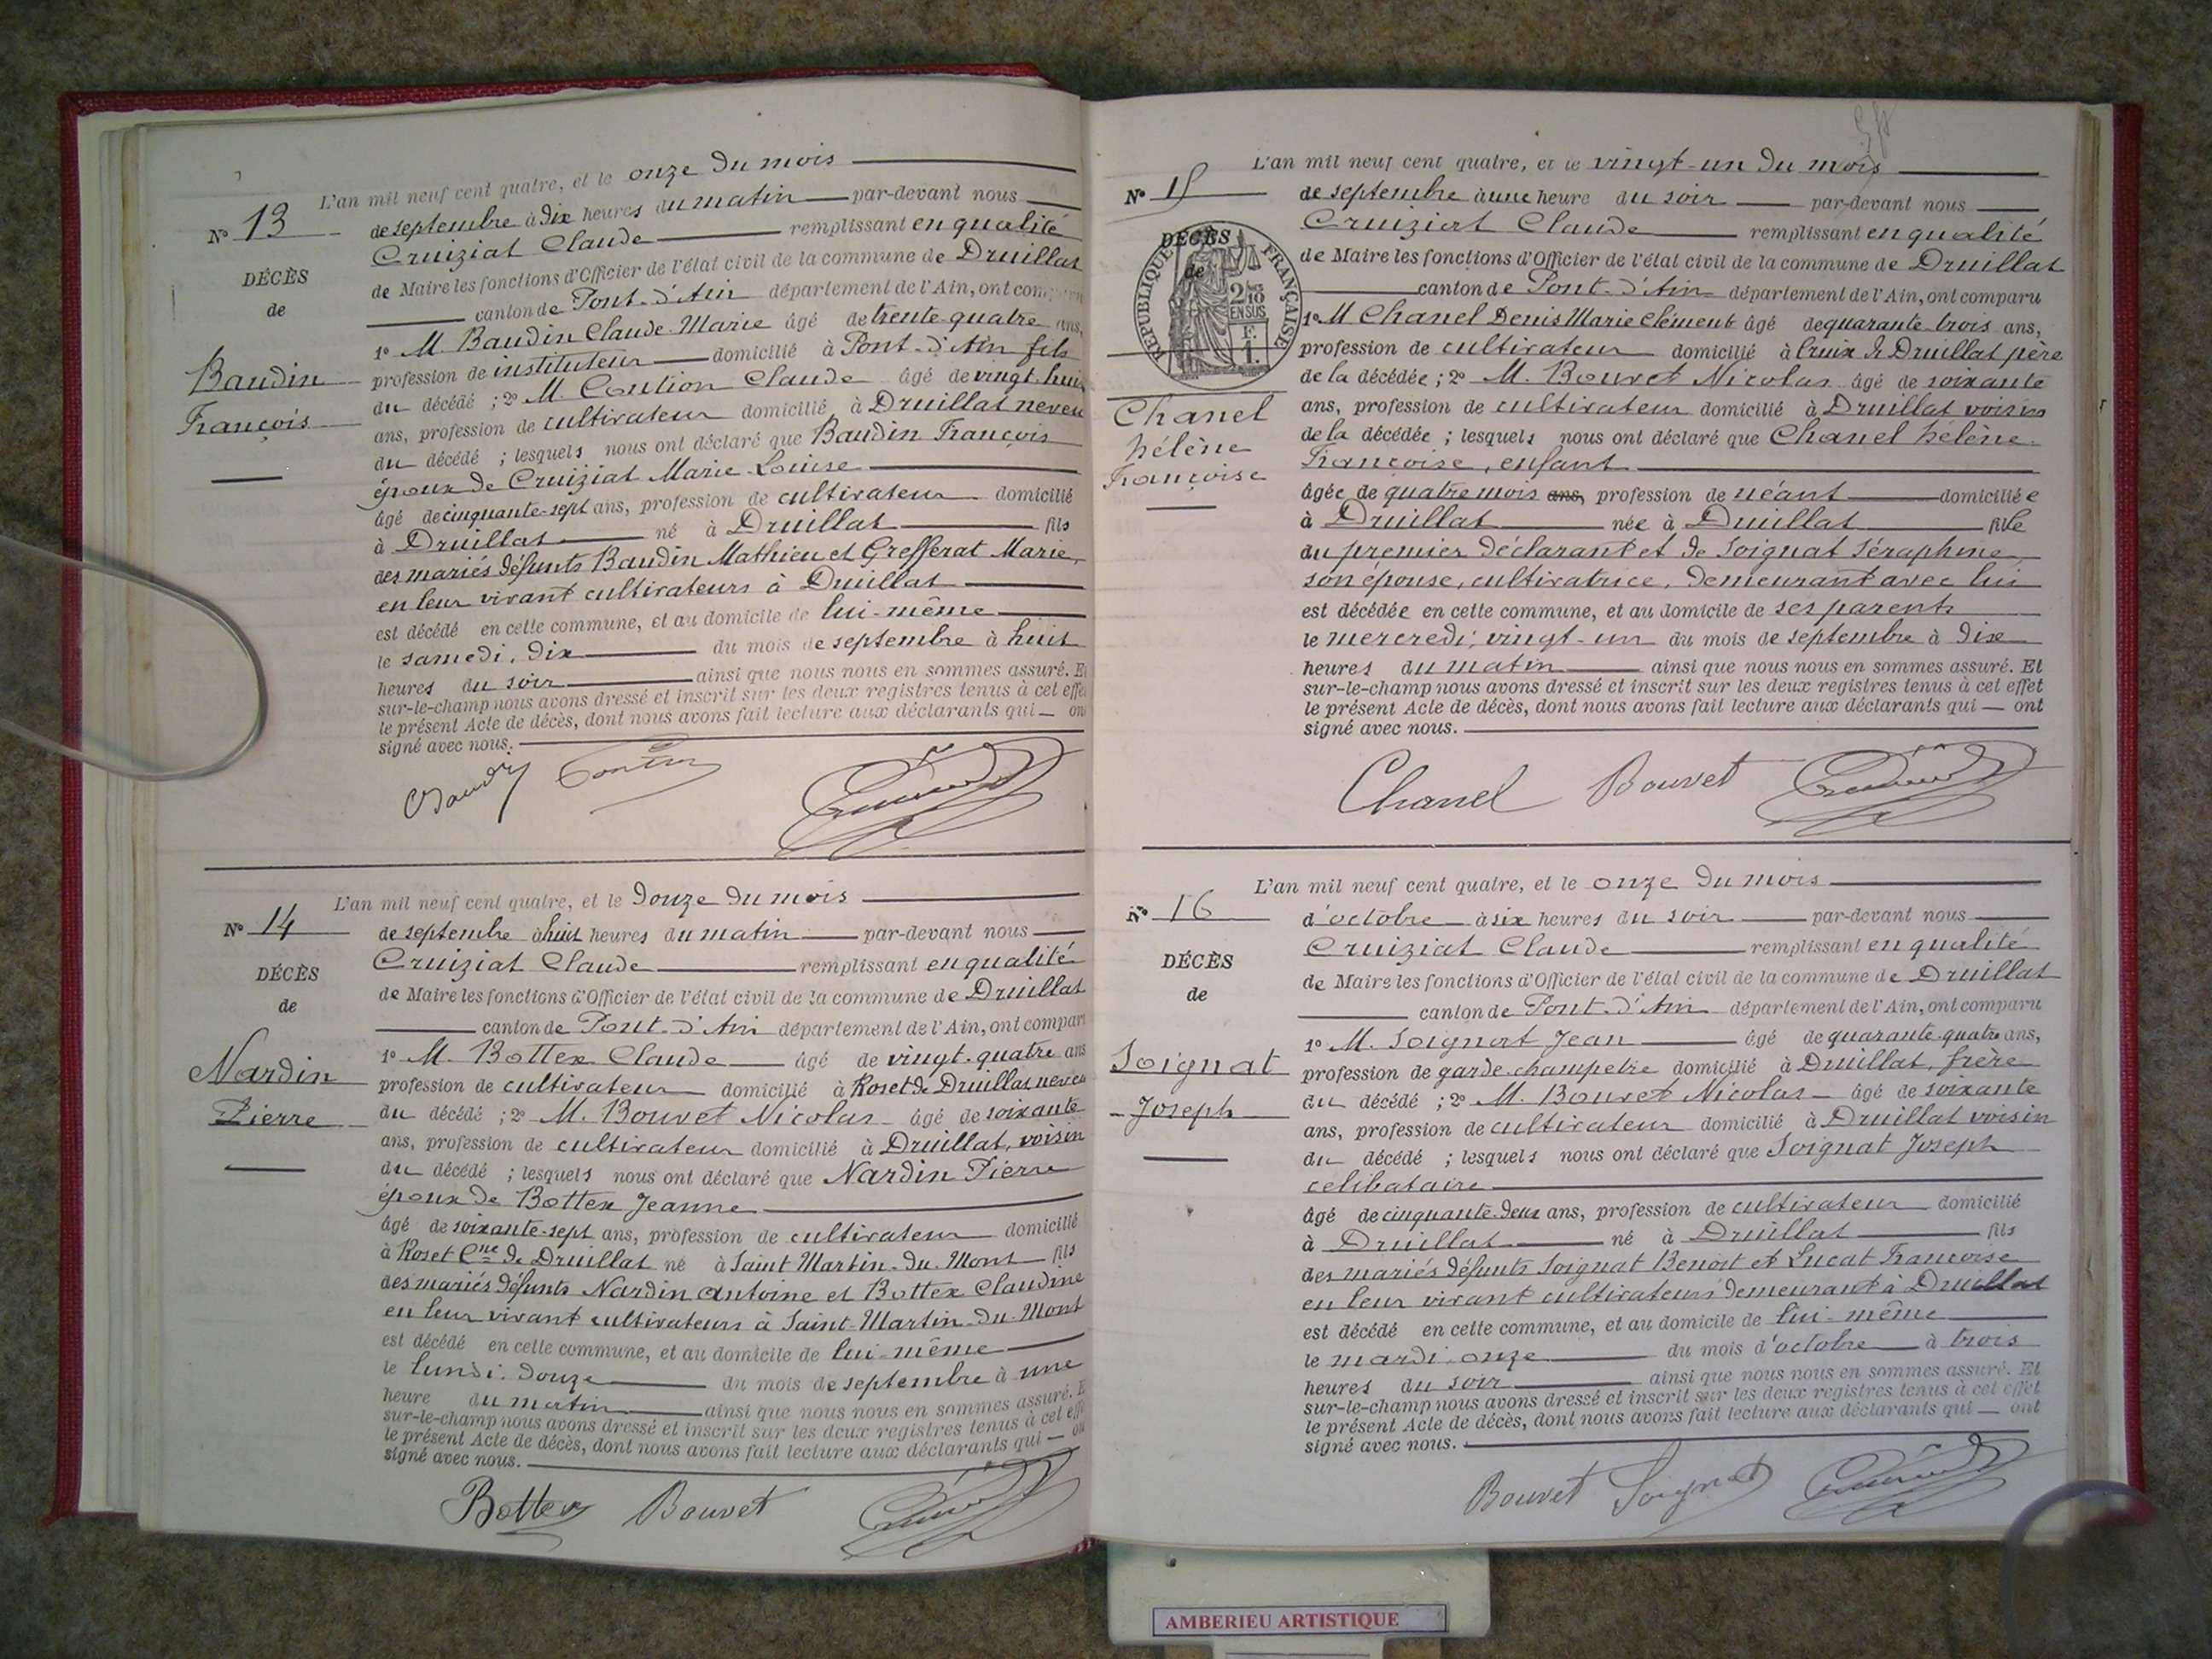 L'an mil neuf cent quatre, et le onze du mois
N° 13
de septembre à dix heures du matin par-devant nous
Cruiziat Claude remplissant en qualité
DÉCÈS
de Maire les fonctions d'Officier de l'état civil de la commune de Druillat
de
canton de Pont-d'Ain département de l'Ain, ont comparu
1° M. Baudin Claude-Marie âgé de trente-quatre ans,
Baudin
profession de instituteur domicilié à Pont-d'Ain fils
du décédé ; 2° M. Contion Claude âgé de vingt-huit
François
ans, profession de cultivateur domicilié à Druillat neveu
du décédé ; lesquels nous ont déclaré que Baudin François
époux de Cruiziat Marie-Louise
âgé de cinquante-sept ans, profession de cultivateur domicilié
à Druillat né à Druillat fils
des mariés défunts Baudin Mathieu et Grefferat Marie,
en leur vivant cultivateurs à Druillat
est décédé en cette commune, et au domicile de lui-même
le samedi, dix du mois de septembre à huit
heures du soir ainsi que nous nous en sommes assuré. Et
sur-le-champ nous avons dressé et inscrit sur les deux registres tenus à cet effet
le présent Acte de décès, dont nous avons fait lecture aux déclarants qui ont
signé avec nous.
L'an mil neuf cent quatre, et le douze du mois
N° 14
de septembre à huit heures du matin par-devant nous
Cruiziat Claude remplissant en qualité
DÉCÈS
de Maire les fonctions d'Officier de l'état civil de la commune de Druillat
de
canton de Pont-d'Ain département de l'Ain, ont comparu
1° M. Bottex Claude âgé de vingt-quatre ans
Nardin
profession de cultivateur domicilié à Roset de Druillat neveu
Pierre
du décédé ; 2° M. Bouvet Nicolas âgé de soixante
ans, profession de cultivateur domicilié à Druillat, voisin
du décédé ; lesquels nous ont déclaré que Nardin Pierre
époux de Bottex Jeanne
âgé de soixante-sept ans, profession de cultivateur domicilié
à Roset Cne de Druillat né à Saint Martin-du-Mont fils
des mariés défunts Nardin Antoine et Bottex Claudine
en leur vivant cultivateurs à Saint-Martin-du-Mont
est décédé en cette commune, et au domicile de lui-même
le lundi, douze du mois de septembre à une
heure du matin ainsi que nous nous en sommes assuré. E
sur-le-champ nous avons dressé et inscrit sur les deux registres tenus à cet effe
le présent Acte de décès, dont nous avons fait lecture aux déclarants qui on
signé avec nous.
Bottex Bouvet
L'an mil neuf cent quatre, et le vingt-un du mois
N° 15
de septembre à une heure du soir par-devant nous
Cruiziat Claude remplissant en qualité
DÉCÈS
de
RÉPUBLIQUE FRANÇAISE
2/10 EN SUS
1 F.
de Maire les fonctions d'Officier de l'état civil de la commune de Druillat
canton de Pont-d'Ain département de l'Ain, ont comparu
1° M Chanel Denis Marie Clément âgé de quarante-trois ans,
profession de cultivateur domicilié à Cruix de Druillat père
de la décédée ; 2° M. Bouvet Nicolas âgé de soixante
Chanel
ans, profession de cultivateur domicilié à Druillat voisin
hélène
de la décédée ; lesquels nous ont déclaré que Chanel hélène
Françoise
Françoise, enfant
âgée de quatre mois ans, profession de néant domiciliée
à Druillat née à Druillat fille
du premier déclarant et de Soignat Séraphine
son épouse, cultivatrice, demeurant avec lui
est décédée en cette commune, et au domicile de ses parents
le mercredi, vingt-un du mois de septembre à dix
heures du matin ainsi que nous nous en sommes assuré. Et
sur-le-champ nous avons dressé et inscrit sur les deux registres tenus à cet effet
le présent Acte de décès, dont nous avons fait lecture aux déclarants qui ont
signé avec nous.
Chanel Bouvet
L'an mil neuf cent quatre, et le onze du mois
N° 16
d'octobre à six heures du soir par-devant nous
Cruiziat Claude remplissant en qualité
DÉCÈS
de Maire les fonctions d'Officier de l'état civil de la commune de Druillat
de
canton de Pont-d'Ain département de l'Ain, ont comparu
1° M. Soignat Jean âgé de quarante-quatre ans,
Soignat
profession de garde-champetre domicilié à Druillat, frère
Joseph
du décédé ; 2° M. Bouvet Nicolas âgé de soixante
ans, profession de cultivateur domicilié à Druillat voisin
du décédé ; lesquels nous ont déclaré que Soignat Joseph
celibataire
âgé de cinquante-deux ans, profession de cultivateur domicilié
à Druillat né à Druillat fils
des mariés défunts Soignat Benoit et Lucat Françoise
en leur vivant cultivateurs demeurant à Druillat
est décédé en cette commune, et au domicile de lui-même
le mardi, onze du mois d'octobre à trois
heures du soir ainsi que nous nous en sommes assuré. Et
sur-le-champ nous avons dressé et inscrit sur les deux registres tenus à cet effet
le présent Acte de décès, dont nous avons fait lecture aux déclarants qui ont
signé avec nous.
Bouvet Soignat
AMBERIEU ARTISTIQUE